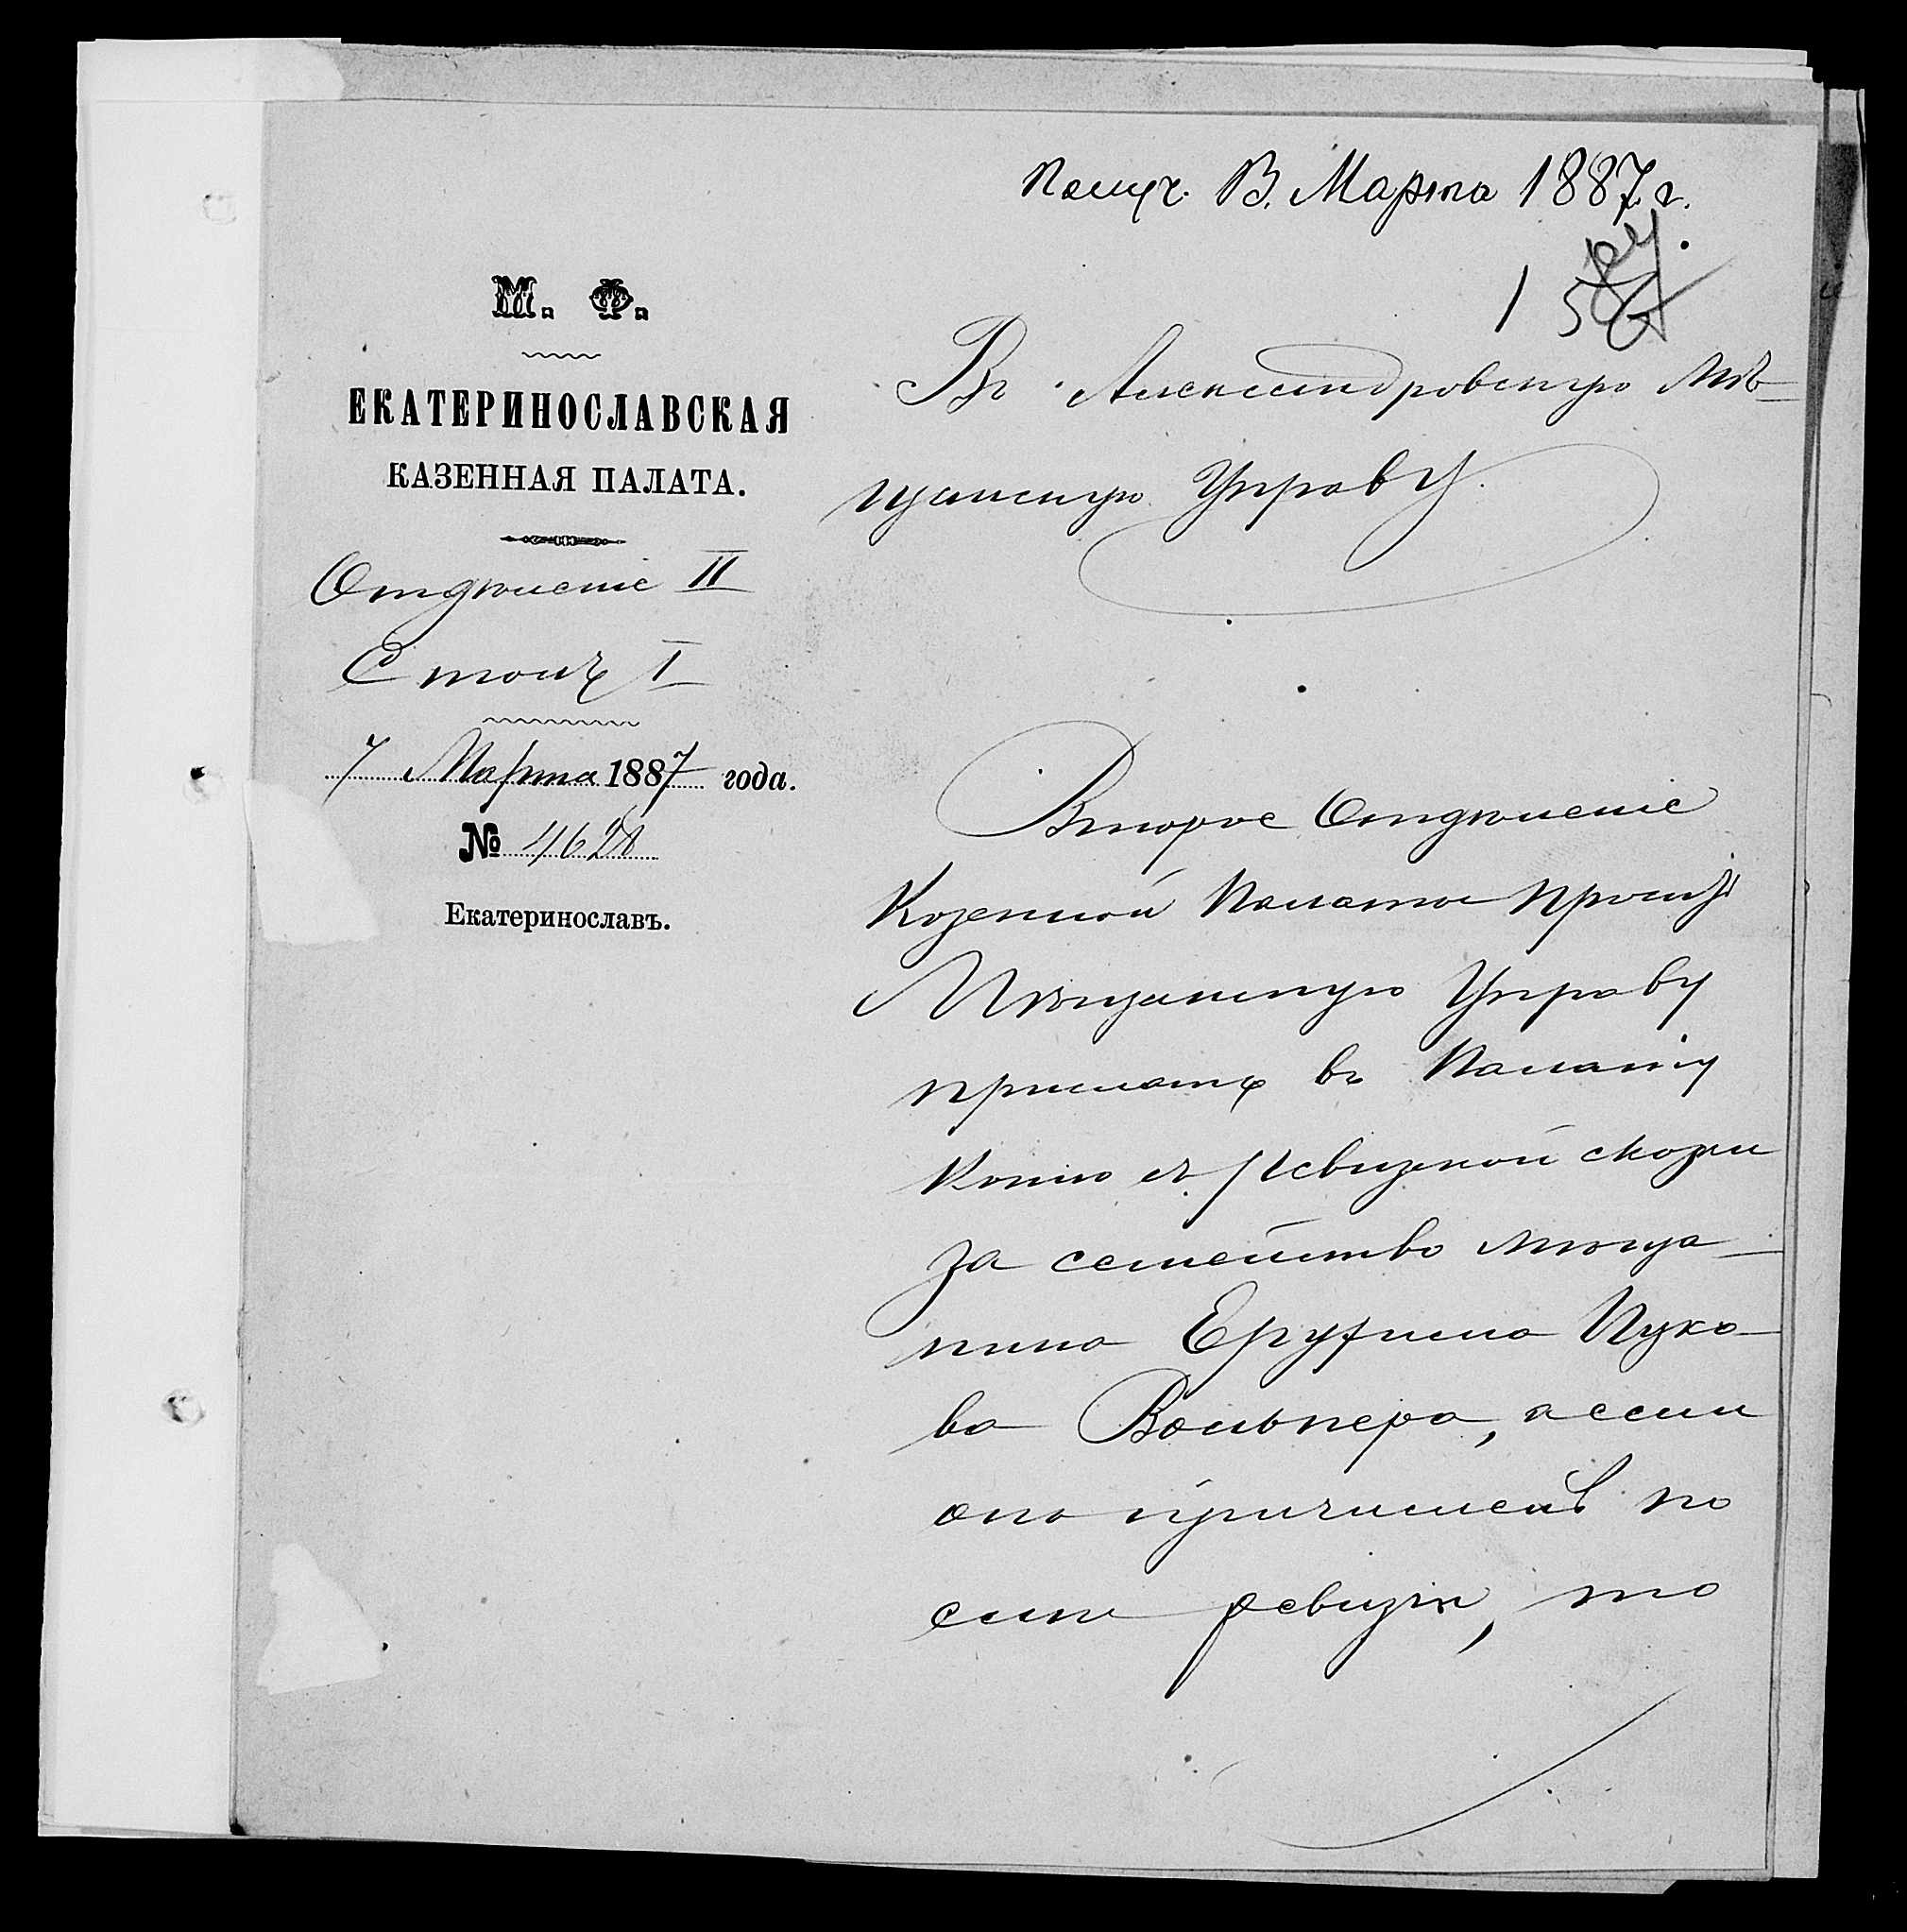 Получ. 13. Марта 1887 г.
М. Ф.
ЕКАТЕРИНОСЛАВСКАЯ
КАЗЕННАЯ ПАЛАТА.
Отдѣленіе II
Столъ I
7 Марта 1887 года.
№ 4628
Екатеринославъ.
Въ Александровскую Мѣ-
щанскую Управу.
Второе Отдѣленіе
Казенной Палаты проситъ
Мѣщанскую Управу
прислать въ Палату
копію съ ревизской сказки
за семейство мѣща-
нина Еруфима Ицко-
ва Вольпера, а если
оно причислено по
слѣ ревизіи, то